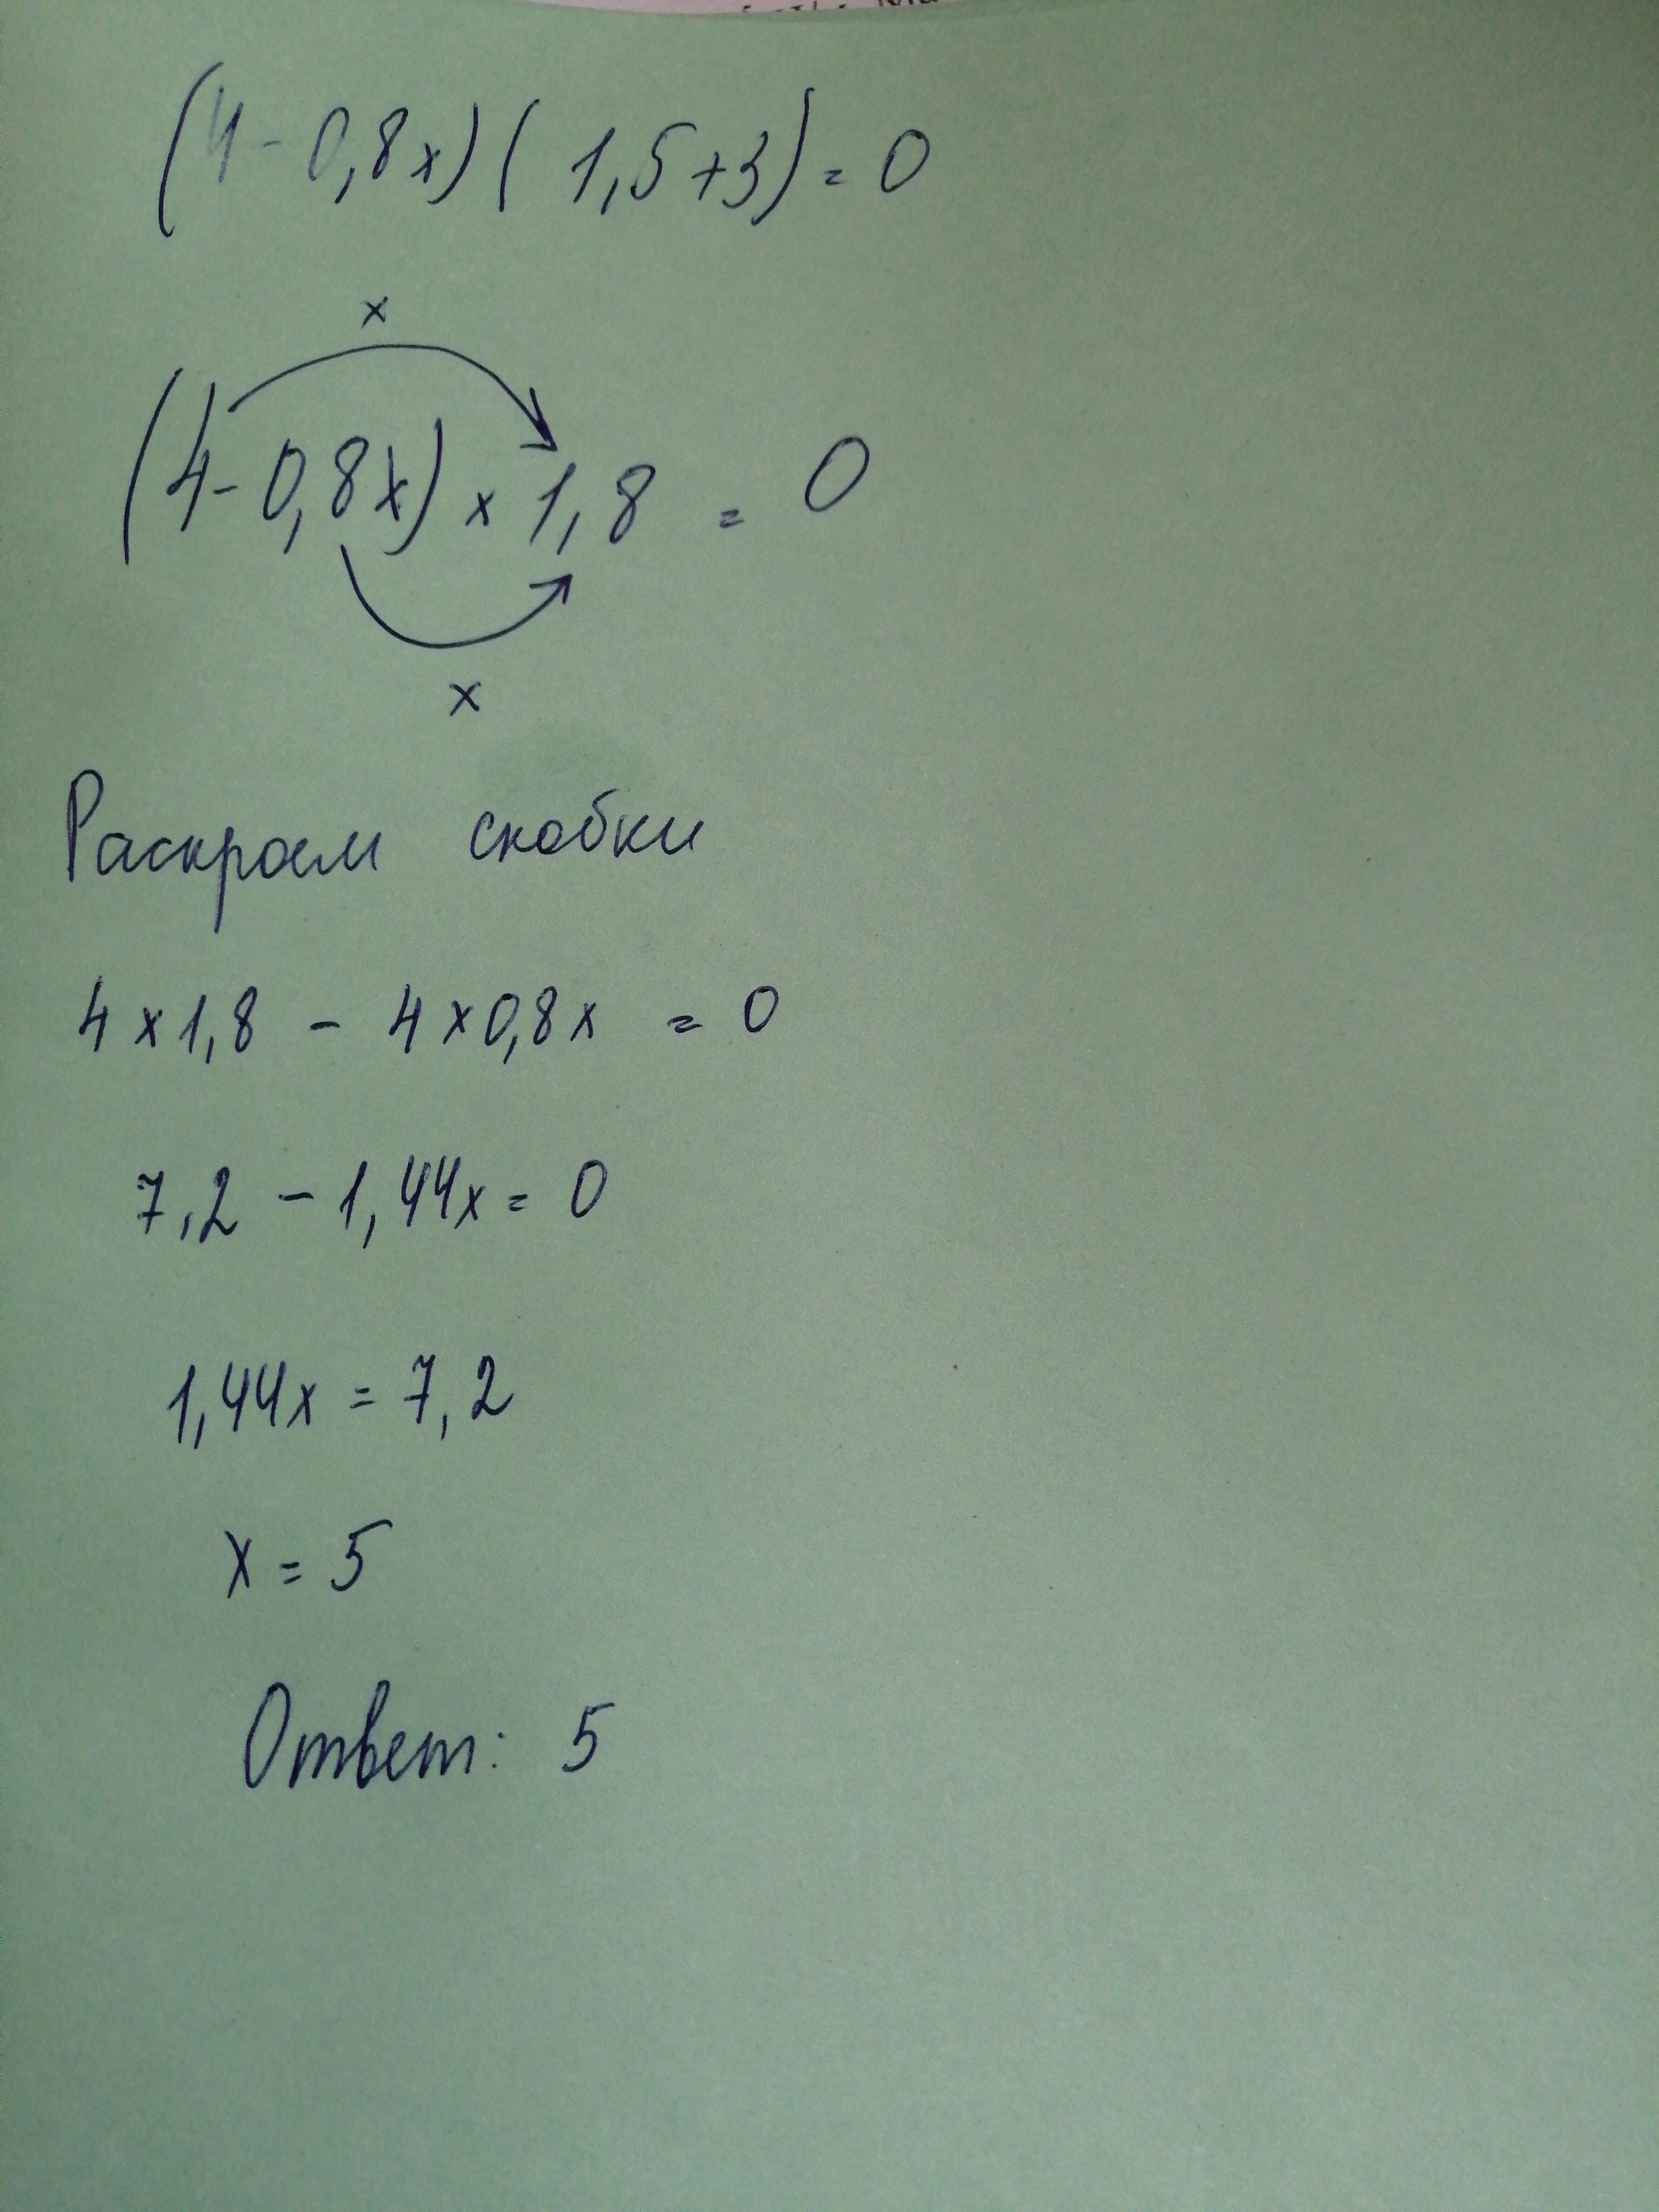 (4-0,8x)(1,5+3)=0
x
(4-0,8x)×1,8=0
x
Раскроем скобки
4×1,8-4×0,8x=0
7,2-1,44x=0
1,44x=7,2
x=5
Ответ: 5